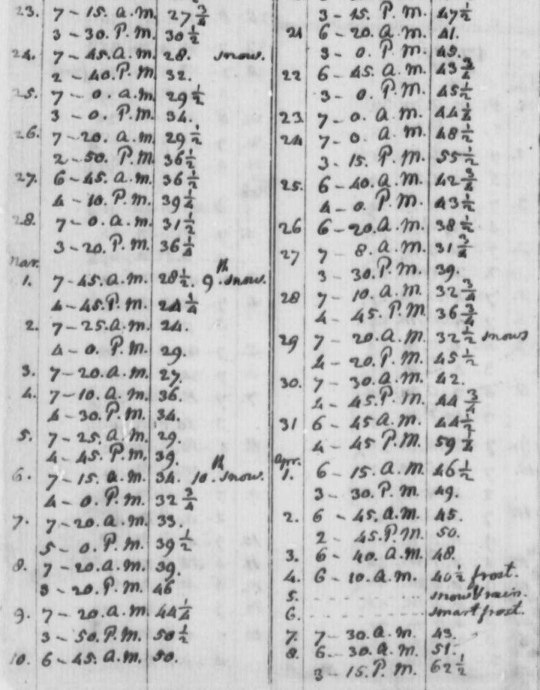 23. 7 - 15. a.m. 27 3/4
3 - 30. P.M. 30 1/2
24. 7 - 45. a.m. 28. snow.
2 - 40. P.M. 32.
25. 7 - 0. a.m. 29 1/2
3 - 0. P.M. 34.
26. 7 - 20. a.m. 29 1/2
2 - 50. P.M. 36 1/2
27. 6 - 45. a.m. 36 1/2
4 - 10. P.M. 39 1/4
28. 7 - 0. a.m. 31 1/2
3 - 20. P.M. 36 1/4
Mar.
1. 7 - 45. a.m. 28 1/2. 9th. snow.
4 - 45. P.M. 24 3/4
2. 7 - 25. a.m. 24.
4 - 0. P.M. 29.
3. 7 - 20. a.m. 27.
4. 7 - 10. a.m. 36.
4 - 30. P.M. 34.
5. 7 - 25. a.m. 29.
4 - 45. P.M. 39.
6. 7 - 15. a.m. 34. 10th. snow.
4 - 0. P.M. 32 3/4
7. 7 - 20. a.m. 33.
5 - 0. P.M. 39 1/2
8. 7 - 20. a.m. 39.
3 - 20. P.M. 46
9. 7 - 20. a.m. 44 1/4
3 - 50. P.M. 50 1/2
10. 6 - 45. a.m. 50.
3 - 15. P.M. 47 1/2
21 6 - 20. a.m. 41.
3 - 0. P.M. 45.
22 6 - 45. a.m. 43 3/4
3 - 0. P.M. 45 1/2
23 7 - 0. a.m. 44 1/4
24 7 - 0. a.m. 48 1/2
3 - 15. P.M. 55 1/2
25. 6 - 40. a.m. 42 3/4
4 - 0. P.M. 43 1/2
26 6 - 20. a.m. 38 1/2
27 7 - 8. a.m. 31 3/4
3 - 30. P.M. 39.
28 7 - 10. a.m. 32 3/4
4 - 45. P.M. 36 3/4
29 7 - 20. a.m. 32 1/2 snows
4 - 20. P.M. 45 1/2
30. 7 - 30. a.m. 42.
4 - 45. P.M. 44 3/4
31 6 - 45 a.m. 44 1/2
4 - 45 P.M. 59
Apr.
1. 6 - 15. a.m. 46 1/2
3 - 30. P.M. 49.
2. 6 - 45. a.m. 45.
2 - 45. P.M. 50.
3. 6 - 40. a.m. 48.
4. 6 - 10. a.m. 40 1/2 frost.
5. snow & rain.
6. smart frost.
7. 7 - 30. a.m. 43.
8. 6 - 30. a.m. 51.
3 - 15. P.M. 62 1/2